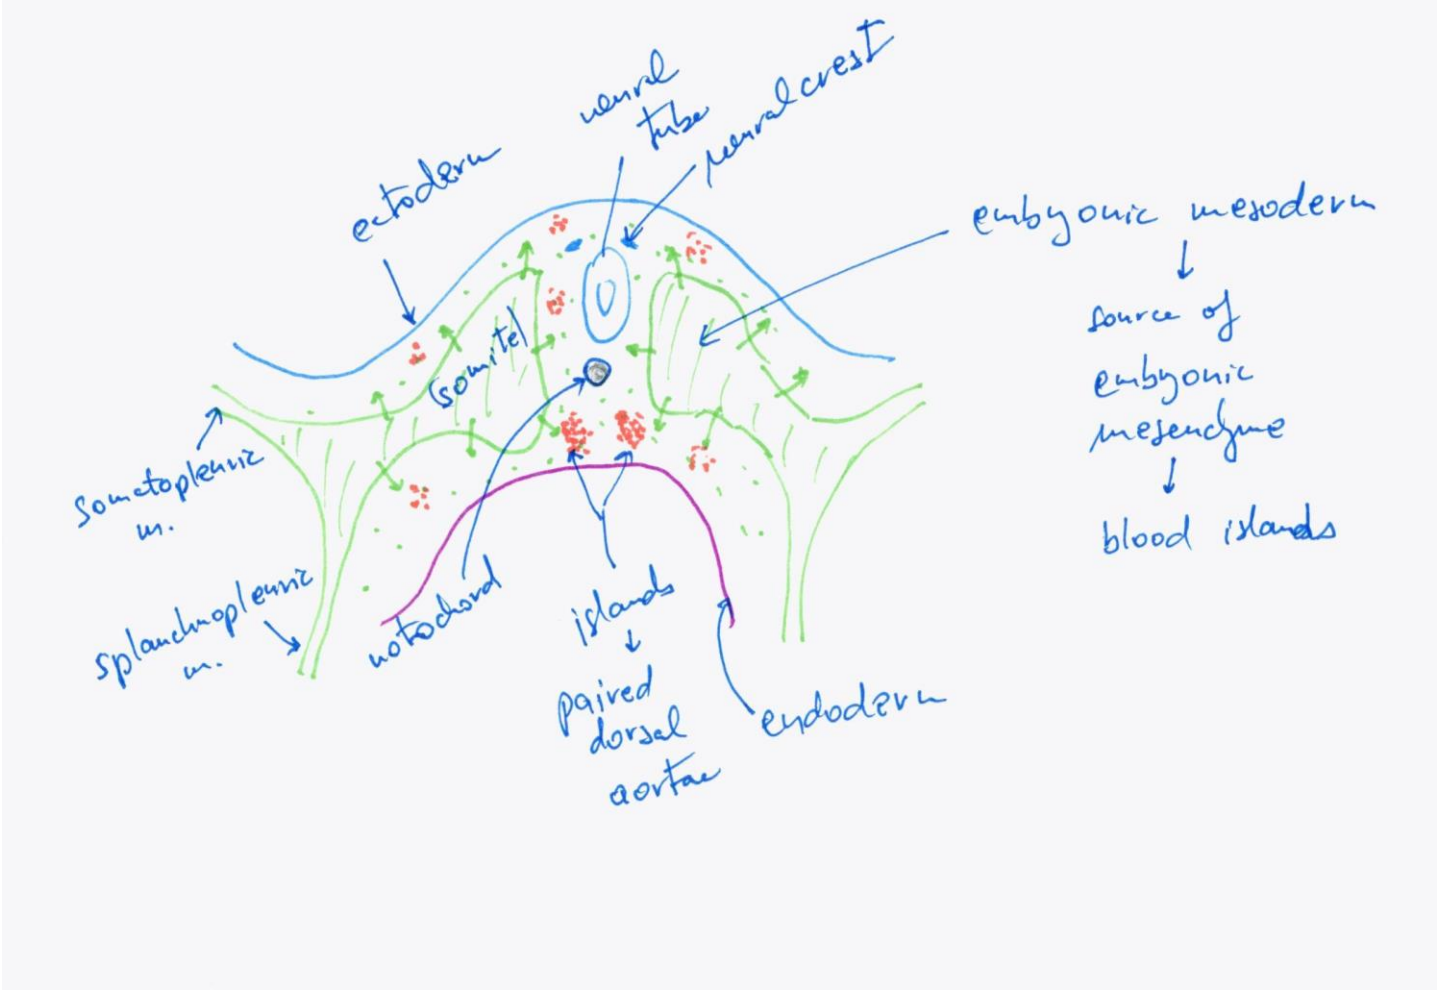 neural
tube
neural crest
ectoderm
embyonic mesoderm
↓
source of
embyonic
mesenchyme
↓
blood islands
(somite)
somatopleuric
m.
splanchnopleuric
m.
notochord
islands
↓
paired
dorsal
aortae
endoderm